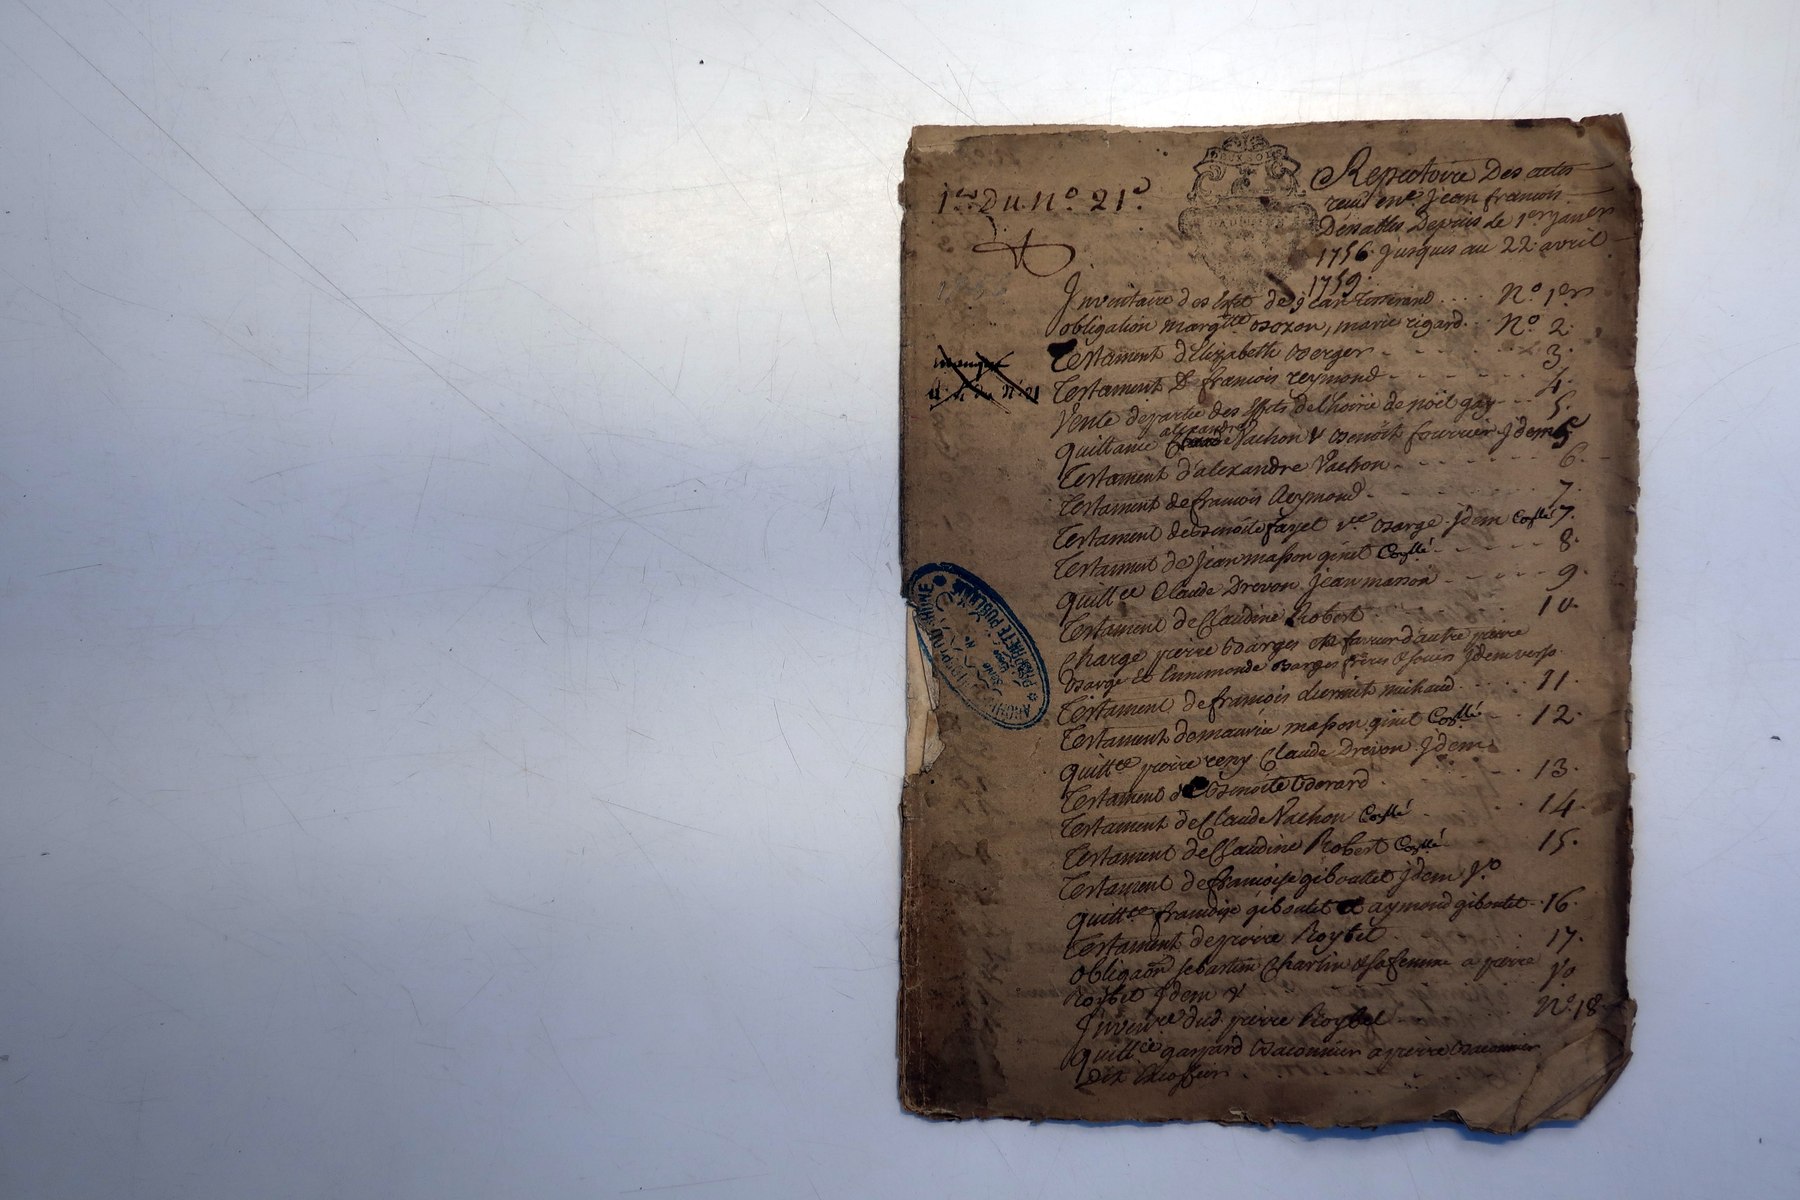 1er du. n.° 21e
DEUX SOLS
Repertoire Des actes
reçus Jean francois
Déssables Depuis le 1er janer
1756. jusques au 22. avril
1759.
Inventaire des de jean tisserand .... N.° 1er
obligation margtte ozon, marie rigard... N.° 2.
manque
Testament d'Elizabeth Berger - - - 3.
n.° 21
Testament de francois reymond - - - 4.
Vente de partie des effets de l'hoirie de noël gay - - 5.
alexandre
quittance Claude Vachon & Benoit fourrier jdem 5
Testament d'alexandre Vachon - - - 6.
Testament de francois Reymond - - - 7.
Testament de Benoite fayet ve Barge jdem Collé 7.
Testament de jean masson ginet Collé - - - 8.
quittce Claude Drevon jean masson - - - 9.
Testament de Claudine Robert 10.
Charge pierre Barges en faveur d'autre pierre
Barge & Ennimonde Barges freres & soeur jdem verso.
Testament de francois michaud .... 11.
Testament de maurice masson ginet Collé - 12.
quittce pierre remy Claude Drevon jdem
Testament de Benoite Berard - - 13.
Testament de Claude Vachon Collé 14.
Testament de Claudine Robert Collé 15.
Testament de francoise giboullet jdem Vo
quittce francoise giboulet et aymond giboulet - 16.
Testament de pierre Roybet 17.
obligaōn sebastien Charlin & sa femme a pierre
Roybet jdem & Vo
Invenre dud. pierre Roybet N.° 18
quittce gaspard Baconnier a pierre Baconnier
Dix
ARCHIVES DU RHONE
PROPRIETE PUBLIQUE